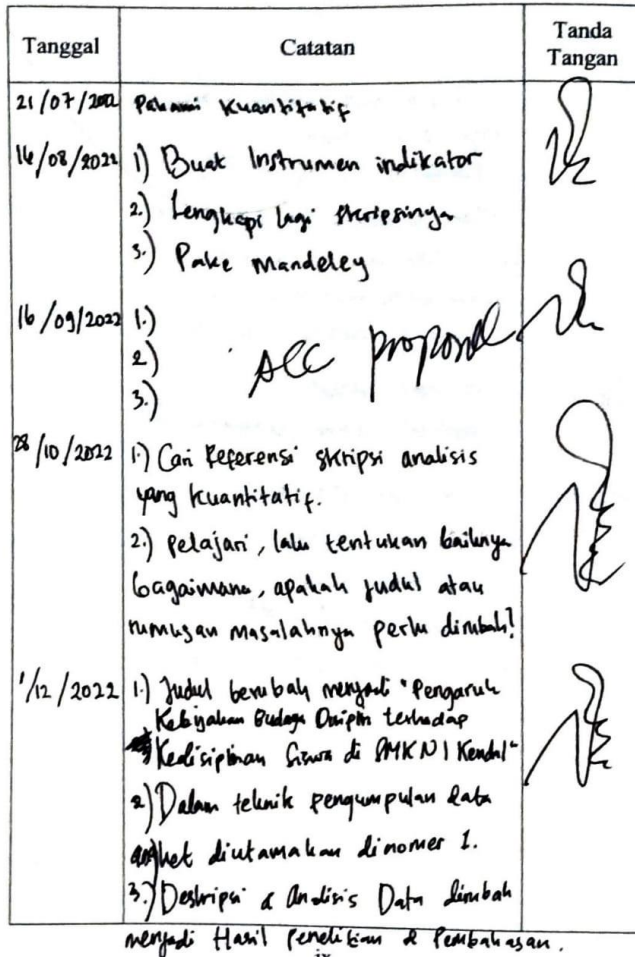 Tanggal
Catatan
Tanda
Tangan
21/07/2022 Pahami Kuantitatif
16/08/2022 1) Buat Instrumen indikator
2.) Lengkapi lagi skripsinya
3.) Pake Mandeley
16/09/2022 1.)
2)
3.)
ACC proposal
28/10/2022 1.) Cari Referensi skripsi analisis
yang kuantitatif.
2.) Pelajari, lalu tentukan baiknya
bagaimana, apakah judul atau
rumusan masalahnya perlu dirubah?
1/12/2022 1.) Judul berubah menjadi "Pengaruh
Kebijakan Budaya Disiplin terhadap
Kedisiplinan Siswa di SMKN 1 Kendal"
2) Dalam teknik pengumpulan data
angket diutamakan dinomer 1.
3.) Deskripsi & Analisis Data dirubah
menjadi Hasil Penelitian & Pembahasan.
ix